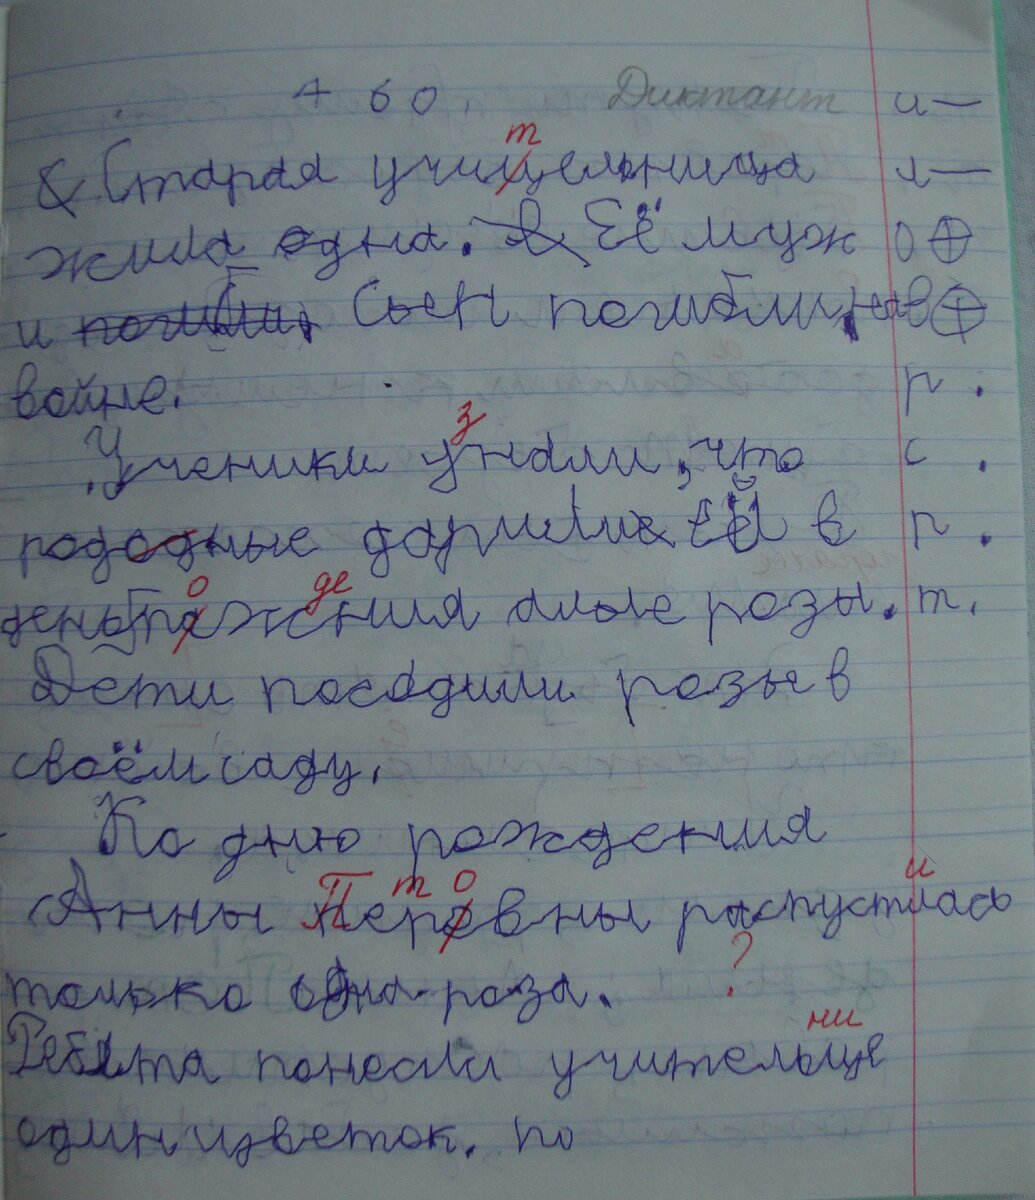 4 60. Диктант и—
т
Старая учицельница л—
жила одна. Её муж о⊕
и погибли, Сын погибли, на в⊕
войне. р.
з
Ученики унали, что с.
рододные дарили ей в п.
о де
день ражения алые розы. т.
Дети посадили розы в
своём саду.
Ко дню рождения
П т о и
Анны Перевны распустлась
только одна роза. ?
ни
Ребята понесли учительце
один цветок. по